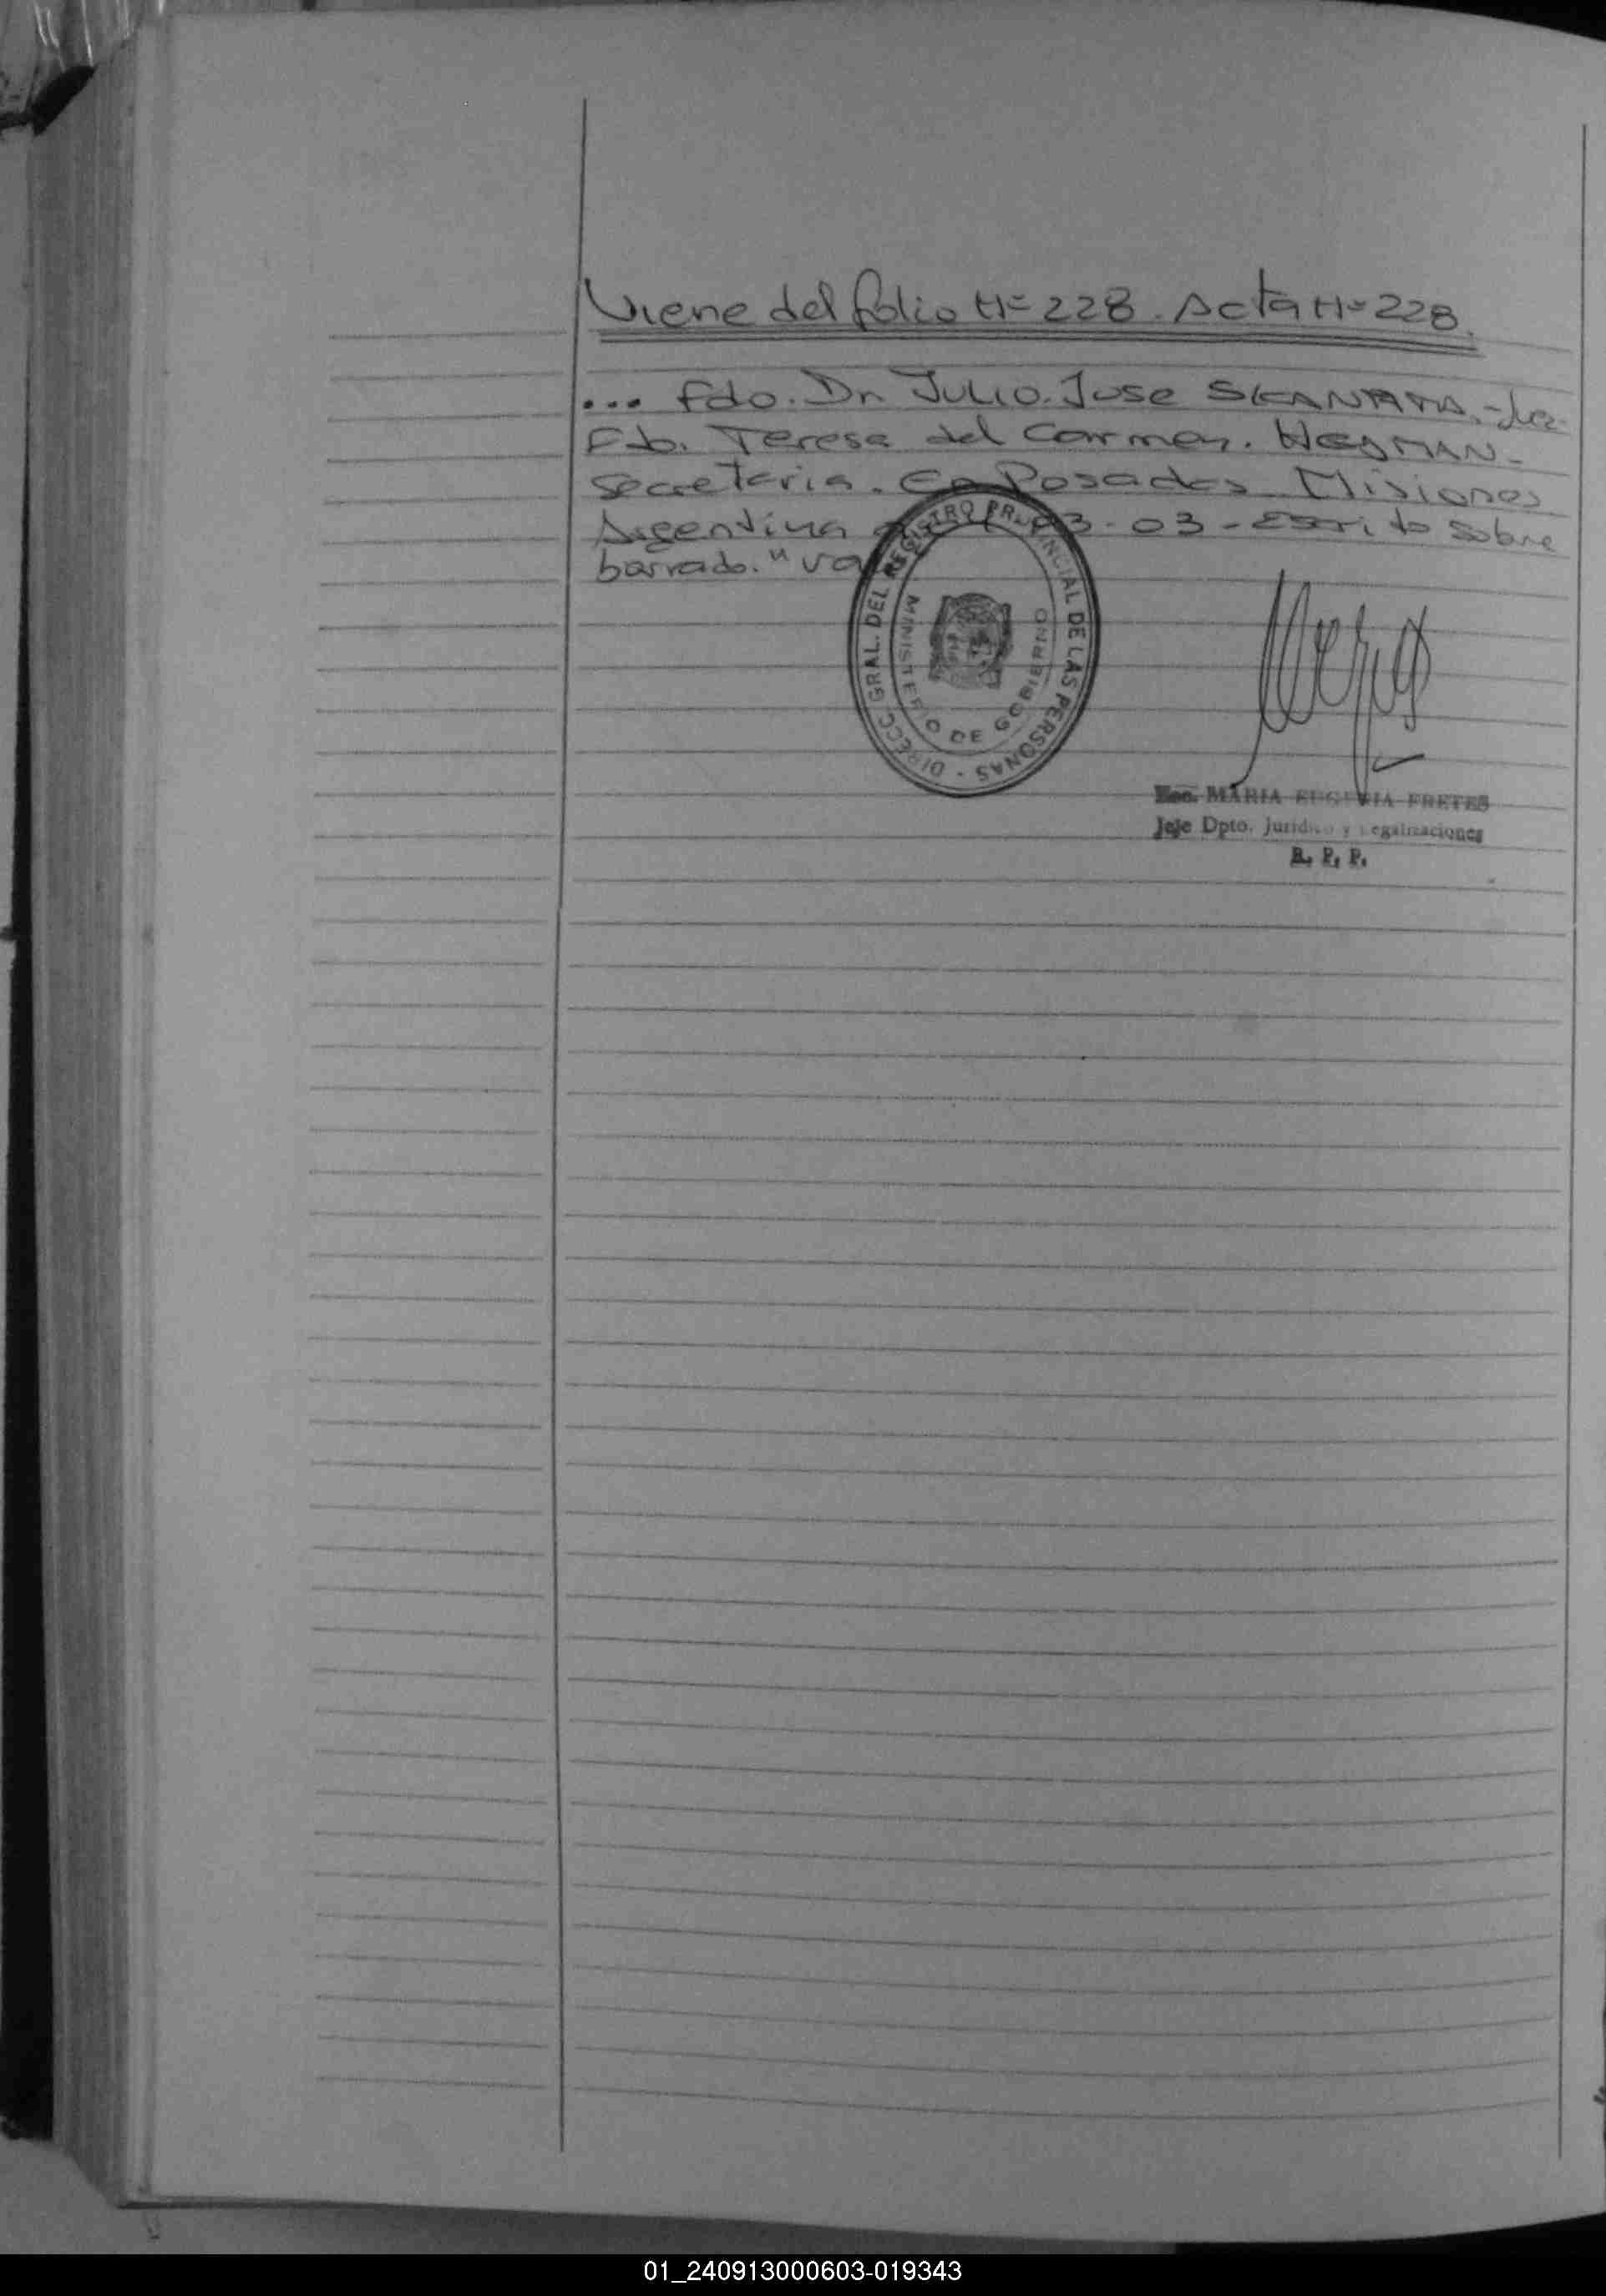 Viene del folio Nº 228. Acta Nº 228.
... Fdo. Dr. Julio. Jose SKANATA. - Juez
Fdo. Teresa del Carmen. HEDMAN -
Secretaria. En Posadas Misiones
Argentina 03 - 03 - Escrito sobre
barrado. "
DIRECC GRAL. DEL REGISTRO PROVINCIAL DE LAS PERSONAS -
MINISTERIO DE GOBIERNO
Esc. MARIA EUGENIA FRETES
Jeje Dpto. Juridico y Legalizaciones
R. P. P.
01_240913000603-019343